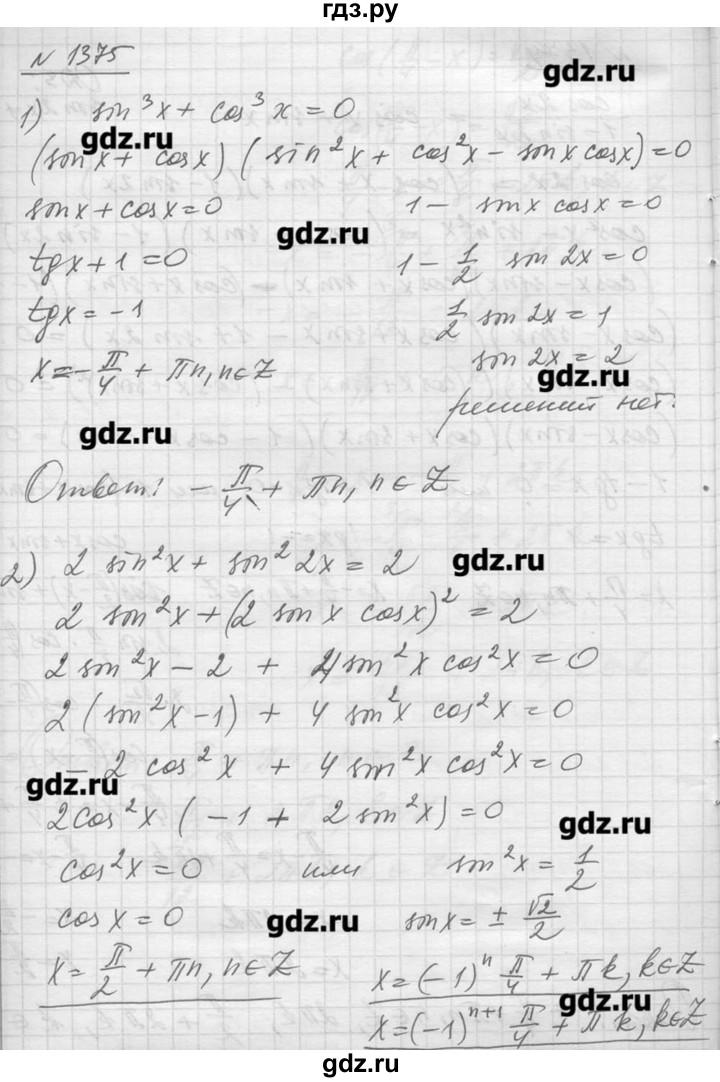 гдз.ру
N 1375
gdz.ru
1) sin³x + cos³x = 0
gdz.ru
(sinx + cosx) (sin²x + cos²x - sinx cosx) = 0
sinx + cosx = 0 1 - sinx cosx = 0
gdz.ru
tgx + 1 = 0 1 - 1/2 sin 2x = 0
tgx = -1 1/2 sin 2x = 1
x = -π/4 + πn, n∈Z sin 2x = 2
gdz.ru
решений нет.
gdz.ru
Ответ: -π/4 + πn, n∈Z
2) 2 sin²x + sin² 2x = 2
gdz.ru
2 sin²x + (2 sinx cosx)² = 2
2 sin²x - 2 + 4 sin²x cos²x = 0
2 (sin²x - 1) + 4 sin²x cos²x = 0
- 2 cos²x + 4 sin²x cos²x = 0
gdz.ru
2cos²x (-1 + 2 sin²x) = 0
gdz.ru
cos²x = 0 или sin²x = 1/2
cosx = 0 sinx = ± √2/2
gdz.ru
x = π/2 + πn, n∈Z x = (-1)ⁿ π/4 + πk, k∈Z
gdz.ru
x = (-1)ⁿ⁺¹ π/4 + πk, k∈Z
gdz.ru